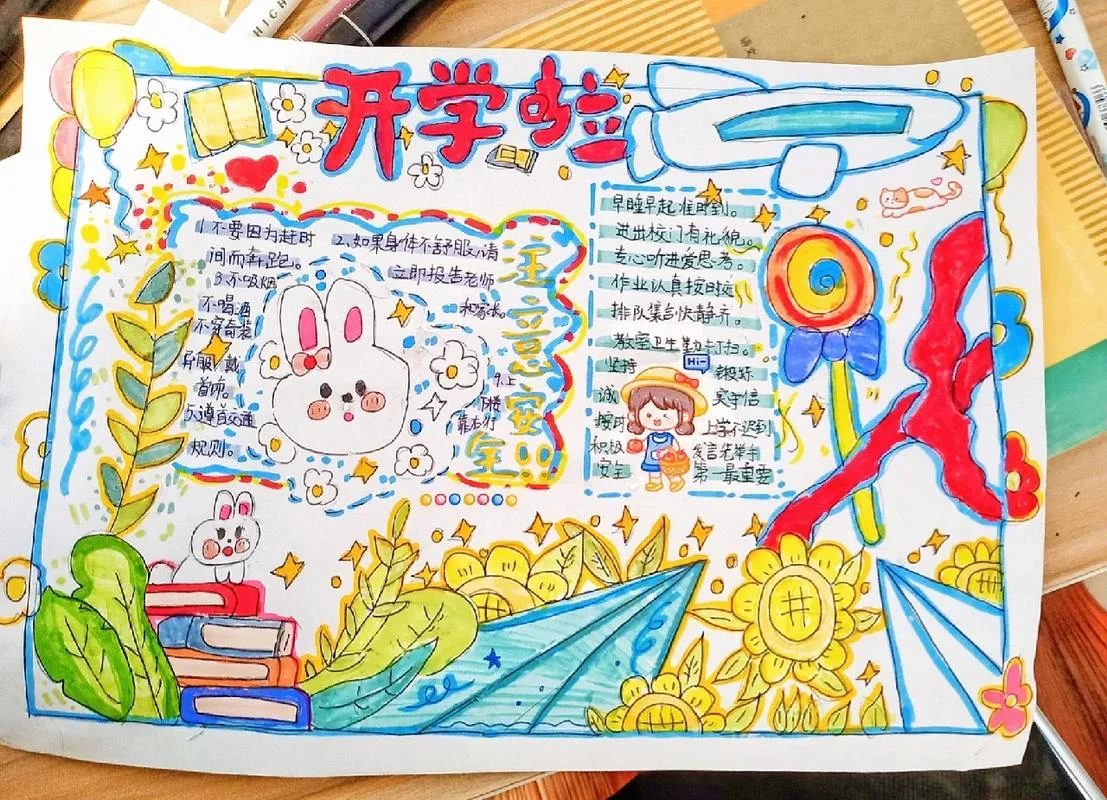 开学啦
注意安全!!
1.不要因为赶时
间而奔跑。
2.如果身体不舒服,请
立即报告老师
和家长
3.不吸烟
不喝酒
不穿奇装
异服、戴
首饰。
5.遵首交通
规则。
9.上
下楼
靠右行
早睡早起准时到。
进出校门有礼貌。
专心听进爱思考。
作业认真按时交
排队集合快静齐。
教室卫生勤打扫。
坚持 锻炼
Hi~
诚 实守信
按时 上学不迟到
积极 发言先举手
安全 第一最重要
语文